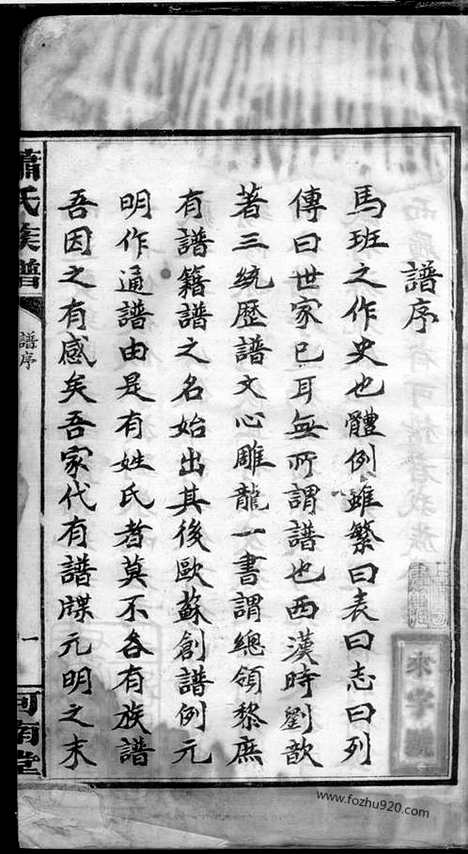 譜序
馬班之作史也體例雖繁曰表曰志曰列
傳曰世家已耳無所謂譜也西漢時劉歆
著三統歷譜文心雕龍一書謂總領黎庶
有譜籍譜之名始出其後歐蘇創譜例元
明作通譜由是有姓氏者莫不各有族譜
吾因之有感矣吾家代有譜牒元明之末
氏族譜
譜序
一
河南堂
www.fozhu920.com